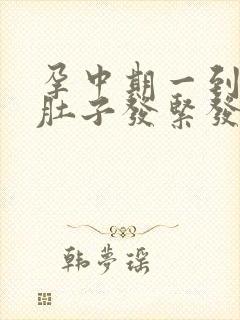 孕中期一到
肚子發緊發
韩夢瑶